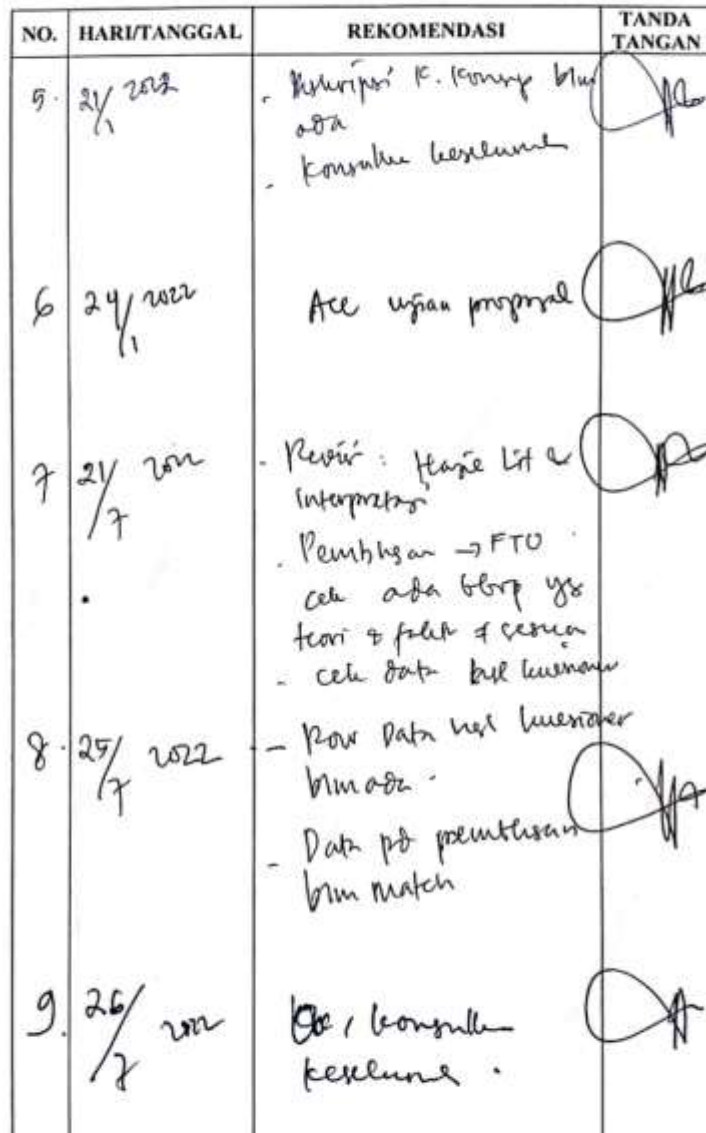 NO. HARI/TANGGAL REKOMENDASI TANDA TANGAN
5. 21/1 2022 - Diskripsi K. Konsep blm
ada
- Konsulkan keseluruhan
6 24/1 2022 Acc ujian proposal
7 21/7 2022 - Revisi : Hasil Lit &
interpretasi
. Pembhsan → FTO
cek ada bbrp yg
teori & fakta sesuai
- cek data hsl kuesioner
8. 25/7 2022 - Row Data hsl kuesioner
blm ada.
- Data pd pembhsan
blm match
9. 26/7 2022 konsulkan
keseluruhan .